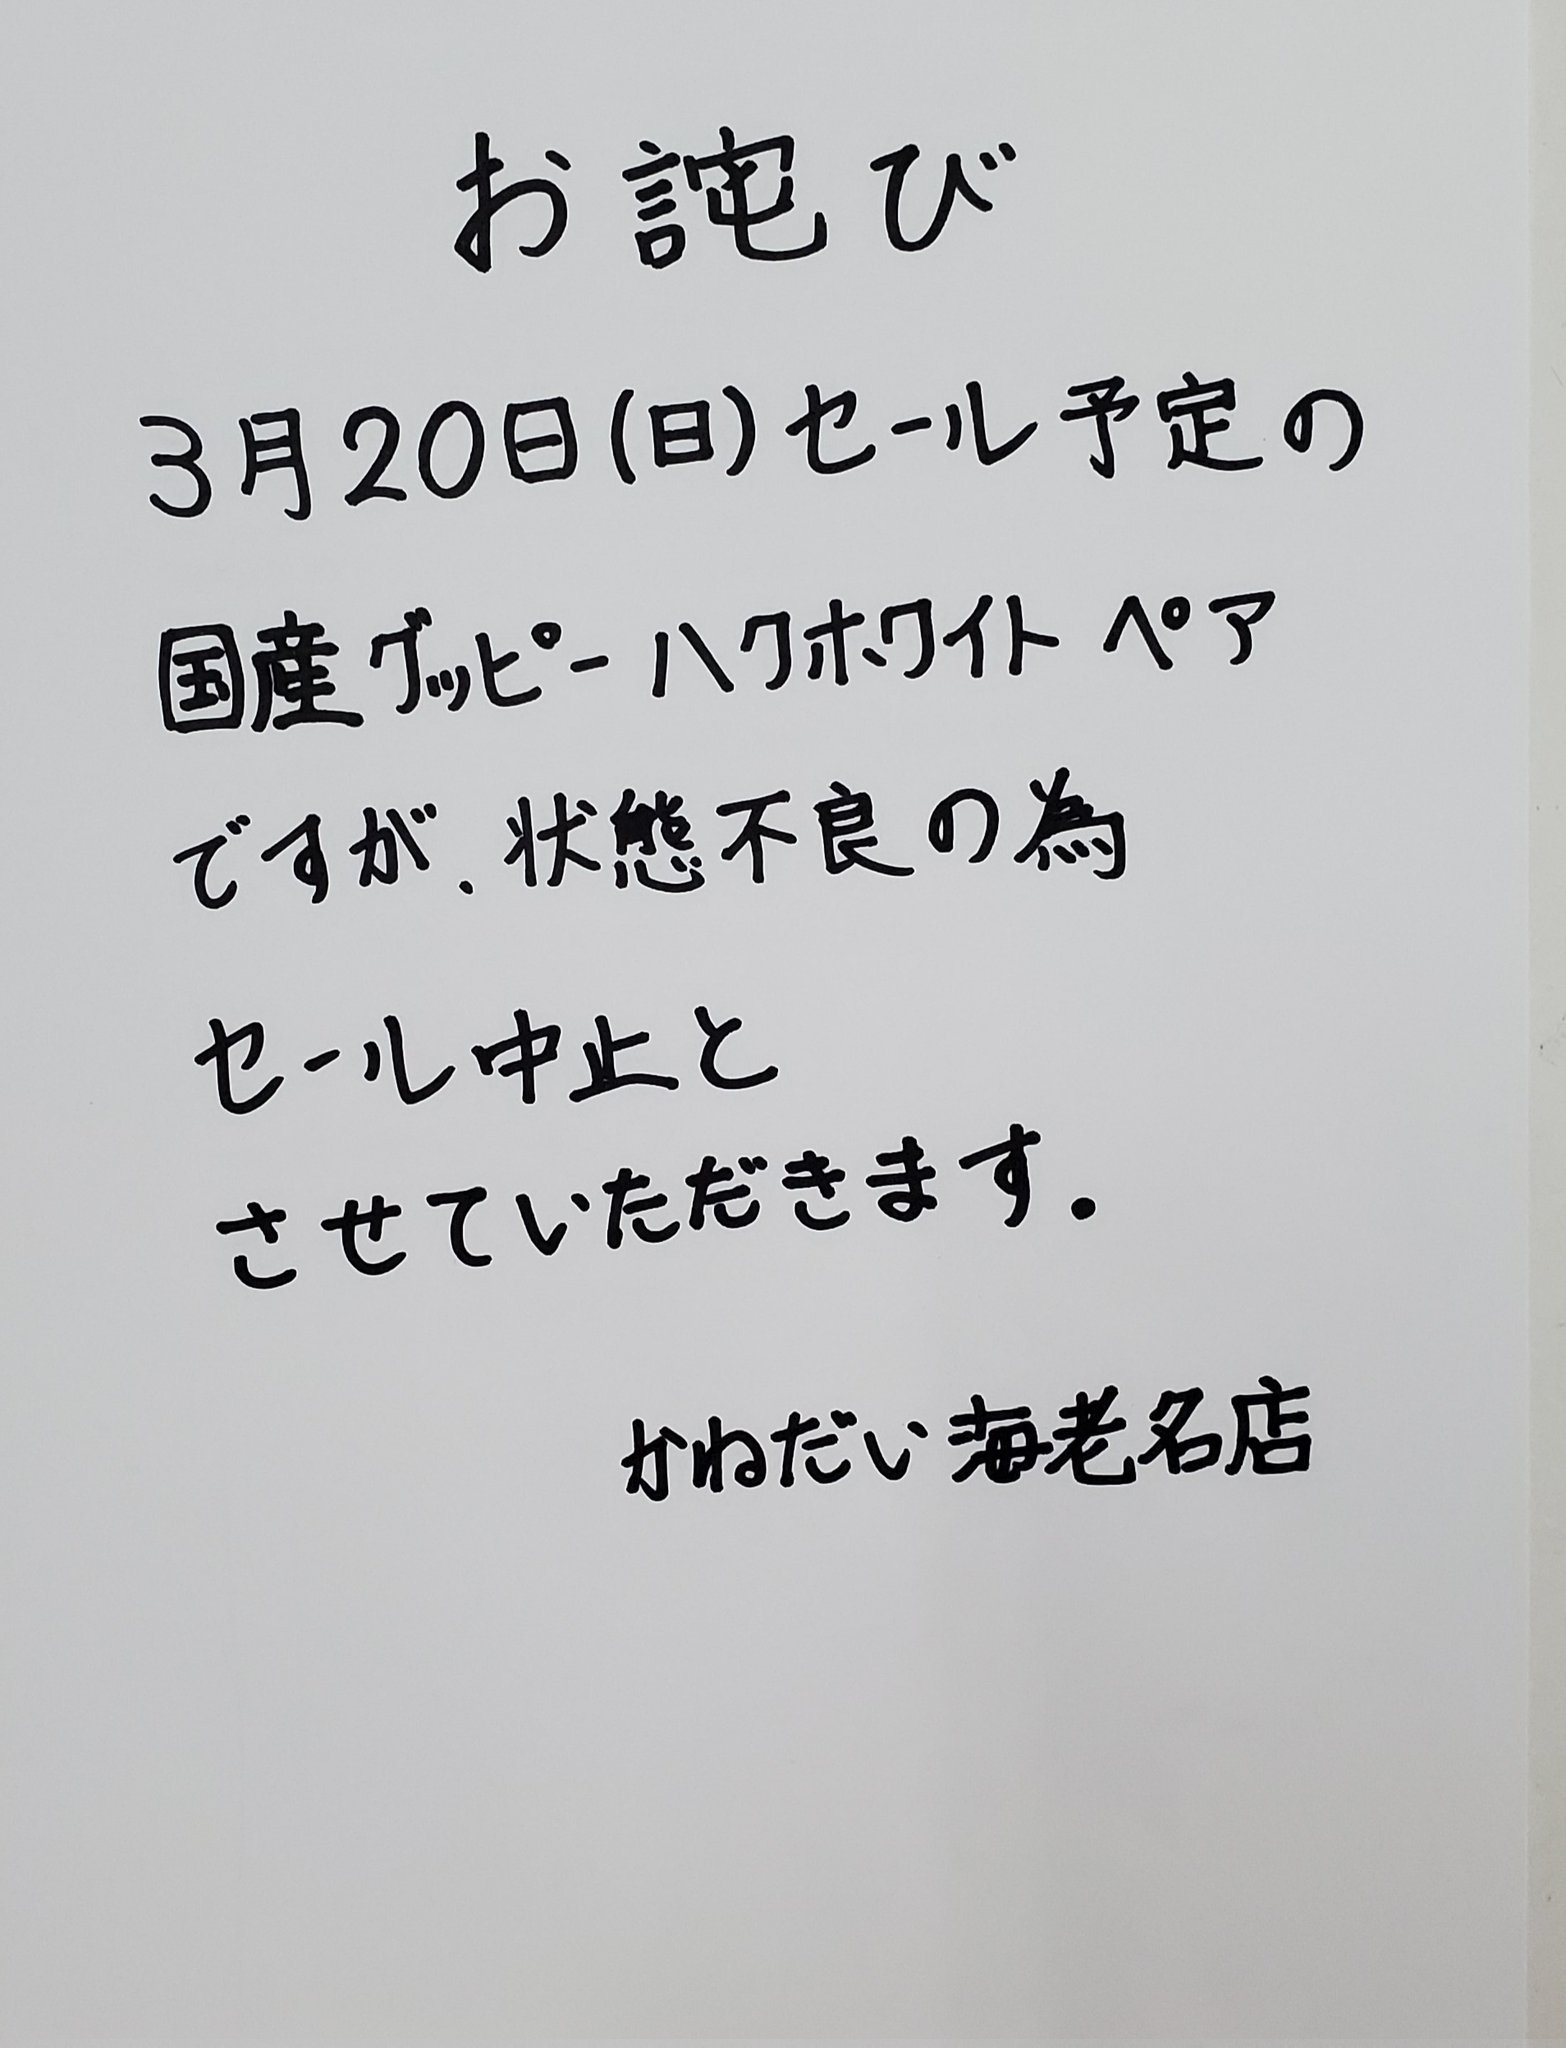 お詫び
3月20日(日)セール予定の
国産グッピーハクホワイト ペア
ですが、状態不良の為
セール中止と
させていただきます.
かねだい海老名店